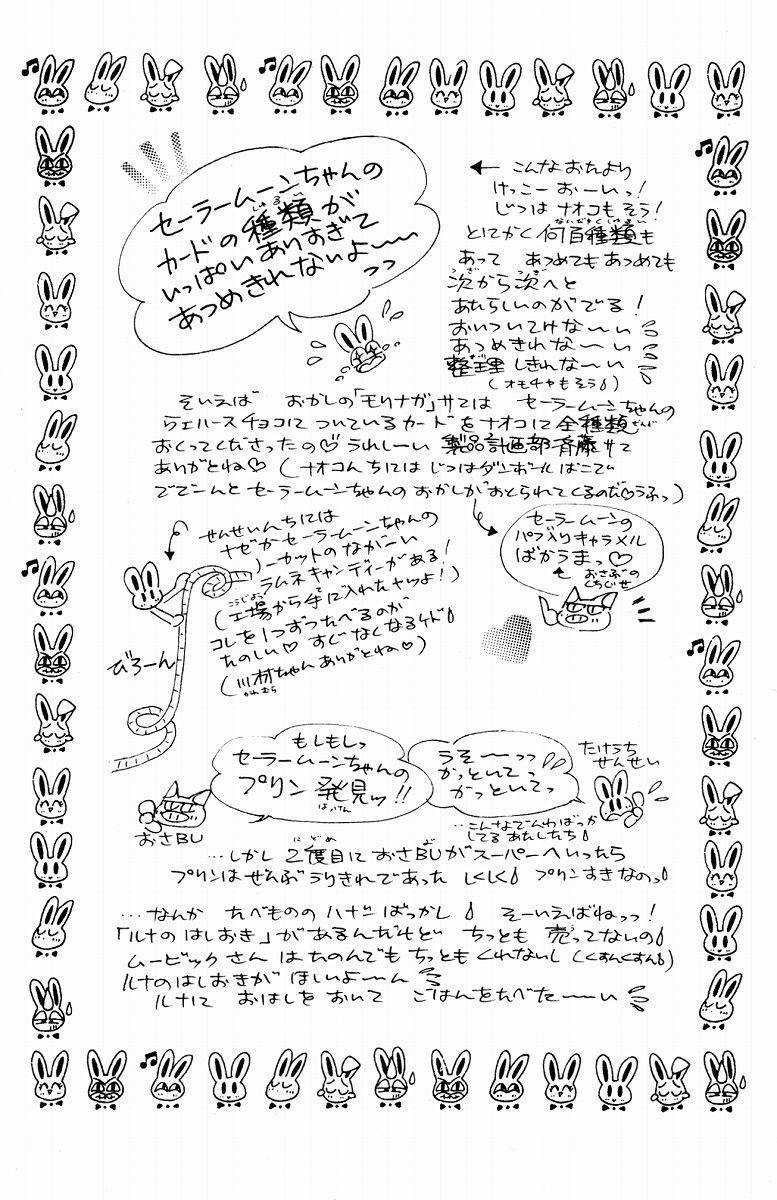 セーラームーンちゃんの
カードの種類が
しゅるい
いっぱいありすぎて
あつめきれないよ〜〜
っっ
← こんなおたより
けっこーおーいっ!
じつはナオコもそう!
なんびゃくしゅるい
とにかく何百種類も
あって あつめてもあつめても
つぎ つぎ
次から次へと
あたらしいのがでる!
おいついてけな〜い
あつめきれな〜い
せいり
整理しきれな〜い
(オモチャもそう)
そいえば おかしの「モリナガ」サマは セーラームーンちゃんの
ウェハースチョコについているカードをナオコに全種類
おくってくださったの♡うれしーい 製品計画部 斉藤サマ
ありがとね♡(ナオコんちには じつはダンボールばこで
でで〜んとセーラームーンちゃんのおかしがおくられてくるのだ♡うふっ)
せんせいんちには
ナゼかセーラームーンちゃんの
ノーカットのながーい
ラムネキャンディーがある!
こうじょう
(工場から手に入れたヤツよ!)
コレを1つずつたべるのが
たのしい♡ すぐなくなるケド
(川村ちゃんありがとね♡)
かわむら
びろーん
セーラームーンの
パフ入りキャラメル
ばかうまっ♡
おさぶの
くちぐせ
もしもしっ
セーラームーンちゃんの
プリン発見ッ!!
はっけん
おさBU
うそ〜〜っっ
かっといてっ
かっといてっ
たけうち
せんせい
…こんなでんわばっか
してるあたしたち
にどめ
…しかし2度目におさBUがスーパーへいったら
プリンはぜんぶうりきれであった しくしく プリンすきなのっ
…なんか たべもののハナシばっかし そーいえばねっっ!
「ルナのはしおき」があるんだけど ちっとも売ってないの
ムービックさんはたのんでもちっともくれないし(くすんくすん)
ルナのはしおきがほしいよ〜ん
ルナに おはしをおいて ごはんをたべた〜〜い